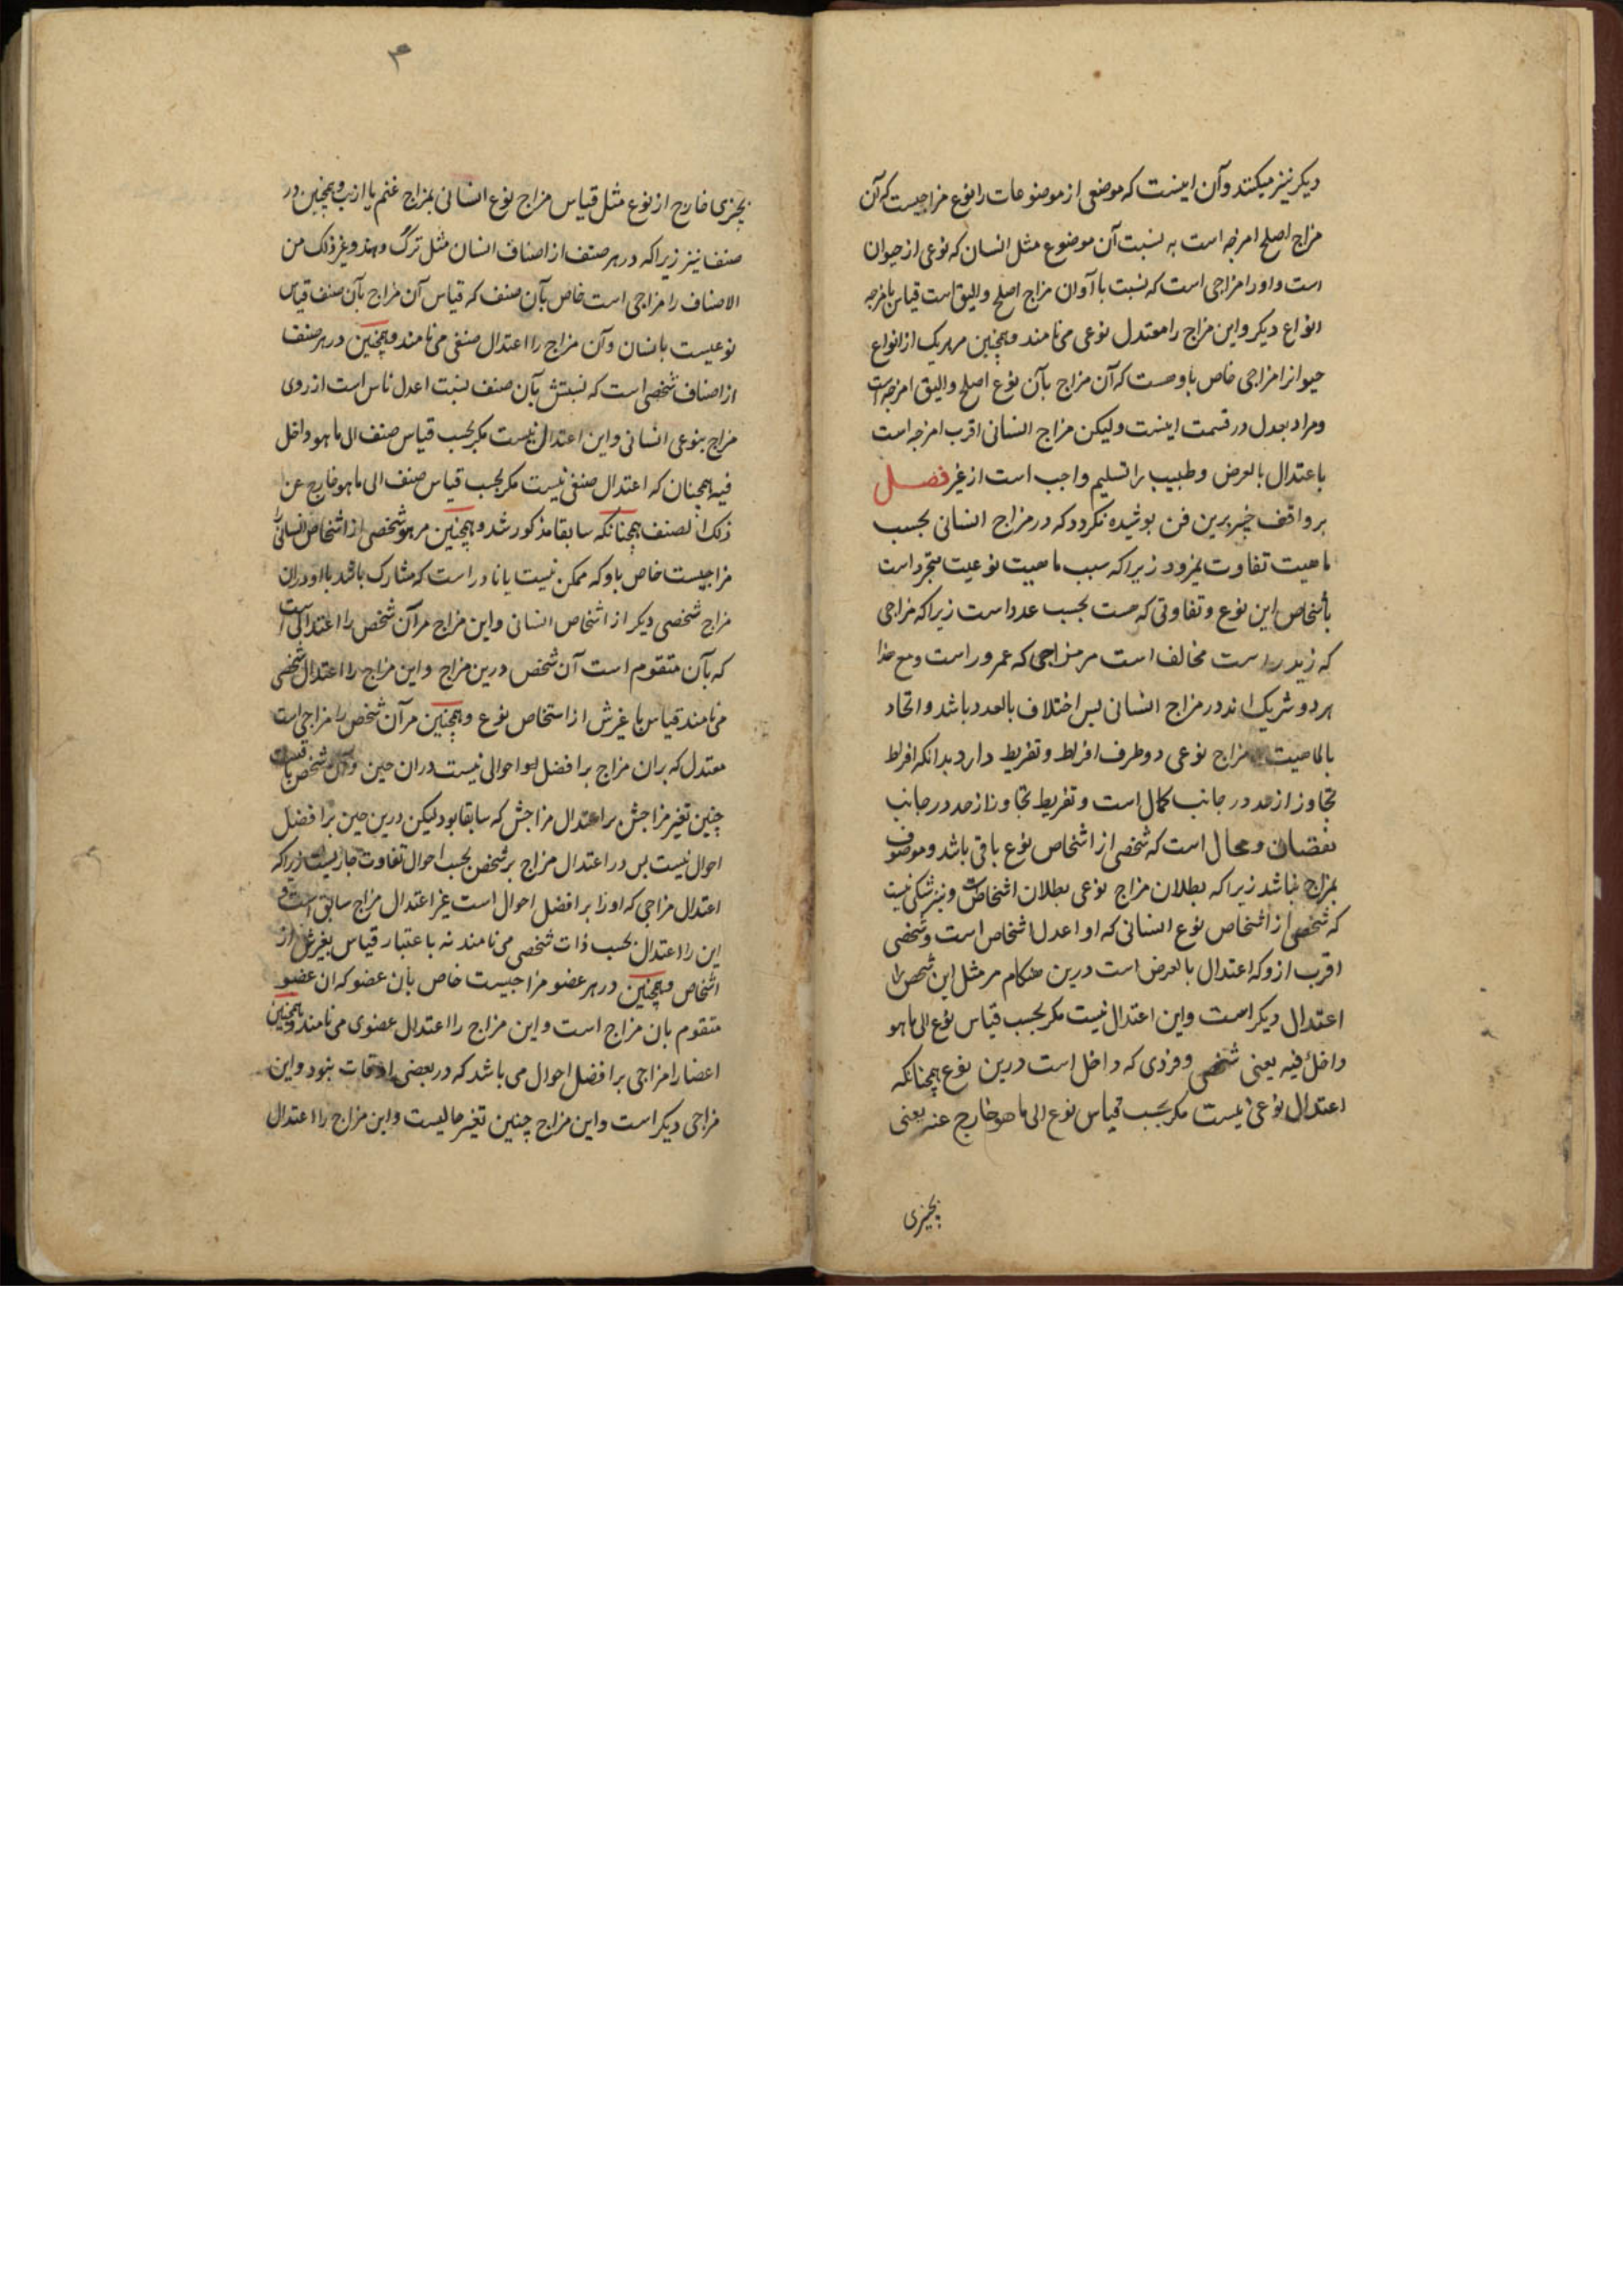 دیکر نیز میکنند و آن اینست که موضعی از موضوعات را نوع مزاجیست که آن
مزاج اصلح امزجه است به نسبت آن موضوع مثل انسان که نوعی از حیوان
است و او را مزاجی است که نسبت باو آن مزاج اصلح و الیق است قیاس بامزجه
انواع دیکر و این مزاج را معتدل نوعی می نامند و همچنین مر هر یک از انواع
حیوانرا مزاجی خاص باو هست که آن مزاج بآن نوع اصلح و الیق امزجه است
و مراد بعدل در قسمت اینست ولیکن مزاج انسانی اقرب امزجه است
باعتدال بالعرض و طبیب را تسلیم واجب است از غیر فصل
بر واقف خبیر برین فن پوشیده نکردد که در مزاج انسانی بحسب
ماهیت تفاوت نمیرود زیرا که سبب ماهیت نوعیت متحد است
بأشخاص این نوع و تفاوتی که هست بحسب عدد است زیرا که مزاجی
که زید راست مخالف است مر مزاجی که عمرو راست و مع هذا
هر دو شریک اند در مزاج انسانی بس اختلاف بالعدد باشد و اتحاد
بالماهیت مزاج نوعی دو طرف افراط و تفریط دارد بدانکه افراط
تجاوز از حد در جانب کمال است و تفریط تجاوز از حد در جانب
نقصان و محال است که شخصی از اشخاص نوع باقی باشد و موصوف
بمزاج نباشد زیرا که بطلان مزاج نوعی بطلان اشخاص است و نیز شکی نیست
که شخصی از اشخاص نوع انسانی که او اعدل اشخاص است و شخصی
اقرب ازو که اعتدال بالعرض است درین هنکام مر مثل این شخص را
اعتدال دیکر است و این اعتدال نیست مکر بحسب قیاس نوع الی ما هو
داخل فیه یعنی شخصی و فردی که داخل است درین نوع همچنانکه
اعتدال نوعی نیست مکر بحسب قیاس نوع الی ما هو خارج عنه یعنی
بچیزی
۳
بچیزی خارج از نوع مثل قیاس مزاج نوع انسانی بمزاج غنم یا ارنب و همچنین در
صنف نیز زیرا که در هر صنف از اصناف انسان مثل ترک و هند و غیر ذلک من
الاصناف را مزاجی است خاص بآن صنف که قیاس آن مزاج بآن صنف قیاس
نوعیست بانسان و آن مزاج را اعتدال صنفی می نامند و همچنین در هر صنف
از اصناف شخصی است که نسبتش بآن صنف نسبت اعدل ناس است از روی
مزاج بنوعی انسانی و این اعتدال نیست مکر بحسب قیاس صنف الی ما هو داخل
فیه همچنان که اعتدال صنفی نیست مکر بحسب قیاس صنف الی ما هو خارج عن
ذلک الصنف همچنانکه سابقا مذکور شد و همچنین مر هر شخصی از اشخاص انسانی را
مزاجیست خاص باو که ممکن نیست یا نادر است که مشارک باشد با او در آن
مزاج شخصی دیکر از اشخاص انسانی و این مزاج مر آن شخص را اعتدالی است
که بآن متقوم است آن شخص درین مزاج و این مزاج را اعتدال شخصی
می نامند قیاس با غیرش از اشخاص نوع و همچنین مر آن شخص را مزاجی است
معتدل که بران مزاج بر افضل احوالی نیست دران حین و آن شخص
چنین تغیر مزاجش بر اعتدال مزاجش که سابقا بود لیکن درین حین بر افضل
احوال نیست بس در اعتدال مزاج بر شخص بحسب احوال تفاوت جاریست زیرا که
اعتدال مزاجی که او را بر افضل احوال است غیر اعتدال مزاج سابق است و
این را اعتدال بحسب ذات شخصی می نامند نه باعتبار قیاس بغیرش از
اشخاص و همچنین در هر عضو مزاجیست خاص بآن عضو که ان عضو
متقوم بان مزاج است و این مزاج را اعتدال عضوی می نامند و همچنین
اعضا را مزاجی بر افضل احوال می باشد که در بعضی اوقات نبود و این
مزاجی دیکر است و این مزاج چنین تغیر حالیست و این مزاج را اعتدال